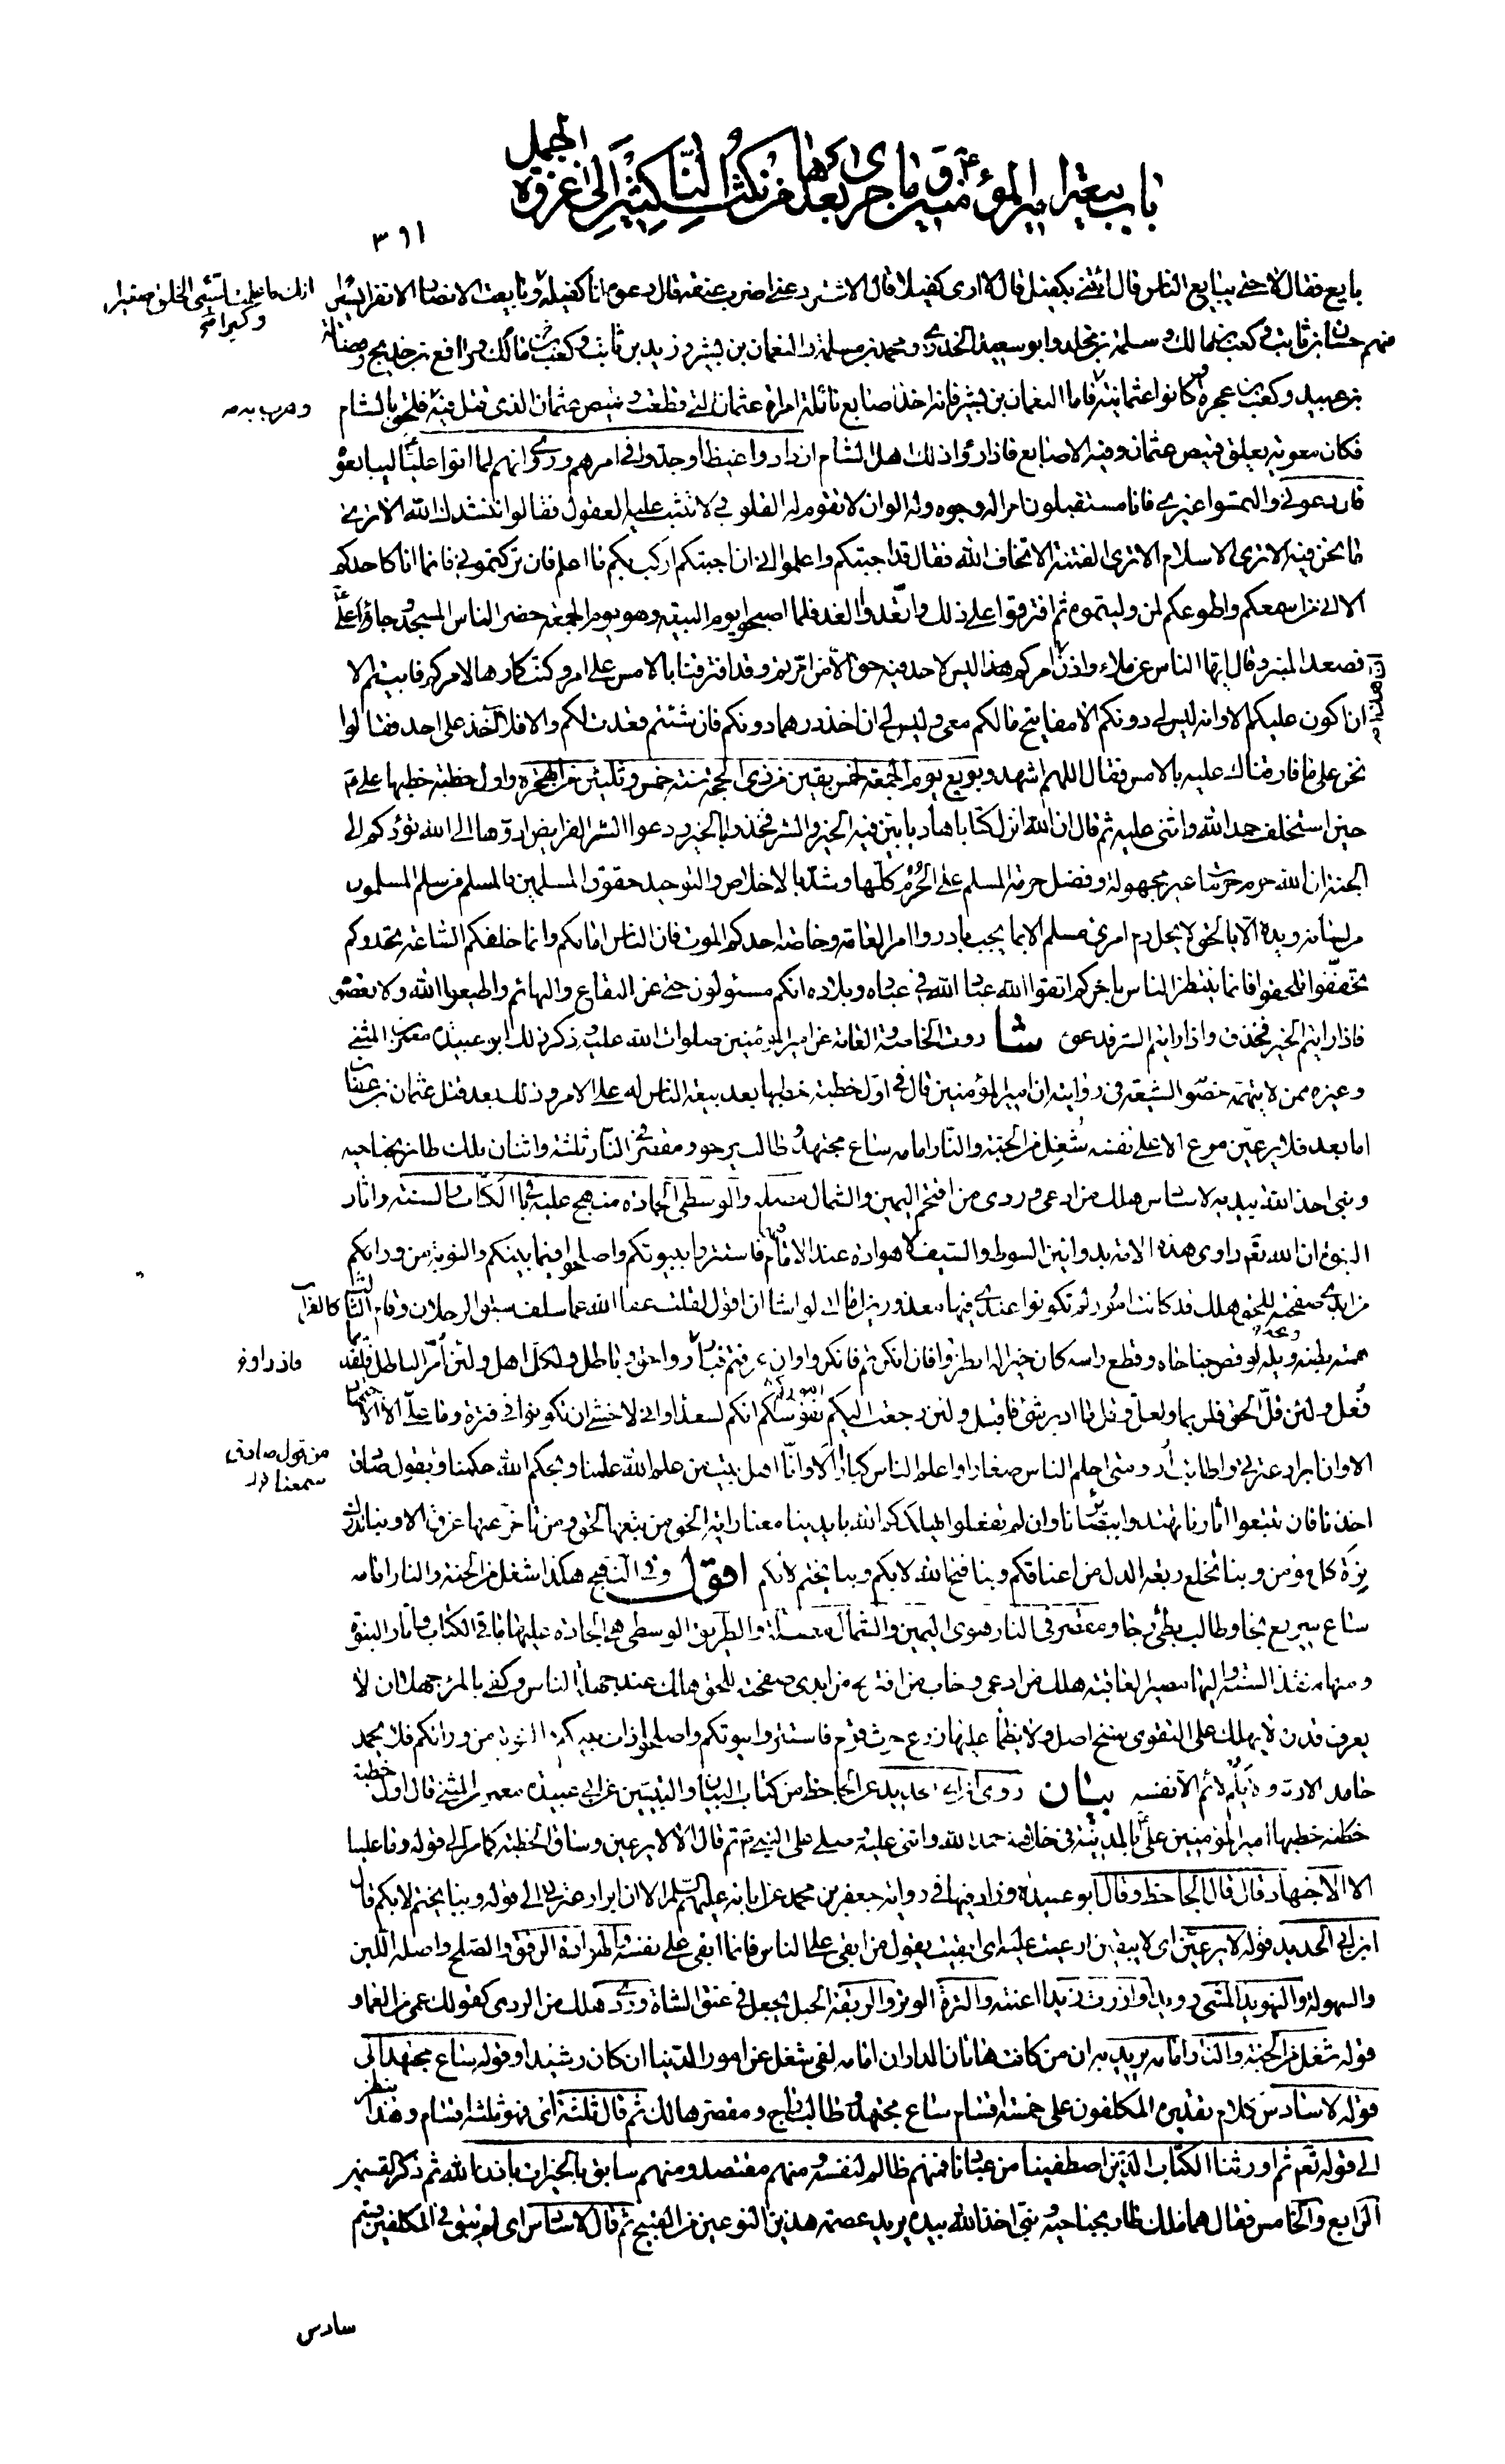 باب بيعة امير المؤمنين ع و ما جرى بعدها من نكث الناكثين الى غزوة الجمل
٣٩١
بايع فقال لا حتى يبايع الناس قال ائتني بكفيل قال لا ارى كفيلا قال الاشتر دعني اضرب عنقه قال دعوه انا كفيله و بايعت الانصار الا نفرا يسيرا
انك ما علمت لسيئ الخلق صغيرا و كبيرا
منهم حسان بن ثابت و كعب بن مالك و مسلمة بن مخلد و ابو سعيد الخدري و محمد بن مسلمة و النعمان بن بشير و زيد بن ثابت و كعب بن مالك و رافع بن خديج و فضالة
بن عبيد و كعب بن عجرة و كانوا عثمانية فاما النعمان بن بشير فانه اخذ اصابع نائلة امراة عثمان التي قطعت و قميص عثمان الذي قتل فيه فلحق بالشام
و هرب به
فكان معوية يعلق قميص عثمان و فيه الاصابع فاذا رأوا ذلك اهل الشام ازدادوا غيظا و جدوا في امرهم و روي انهم لما اتوا عليا ليبايعوه
قال دعوني و التمسوا غيري فانا مستقبلون امرا له وجوه و له الوان لا تقوم له القلوب و لا تثبت عليه العقول فقالوا ننشدك الله الا ترى
ما نحن فيه الا ترى الاسلام الا ترى الفتنة الا تخاف الله فقال قد اجبتكم و اعلموا اني ان اجبتكم اركب بكم ما اعلم فان تركتموني فانما انا كاحدكم
الا اني من اسمعكم و اطوعكم لمن وليتموه ثم افترقوا على ذلك و اتعدوا الغد فلما اصبحوا يوم البيعة و هو يوم الجمعة حضر الناس المسجد و جاء علي ع
فصعد المنبر و قال ايها الناس عن ملاء و اذن امركم هذا ليس لاحد فيه حق الا من امرتم و قد افترقنا بالامس على امر و كنت كارها لامركم فابيتم الا
ان هذا
ان اكون عليكم الا و انه ليس لي دونكم الا مفاتيح مالكم معي و ليس لي ان اخذ درهما دونكم فان شئتم قعدت لكم و الا فلا آخذ على احد فقالوا
نحن على ما فارقناك عليه بالامس فقال اللهم اشهد و بويع يوم الجمعة لخمس بقين من ذي الحجة سنة خمس و ثلثين من الهجرة و اول خطبة خطبها علي ع
حين استخلف حمد الله و اثنى عليه ثم قال ان الله انزل كتابا هاديا يبين فيه الخير و الشر فخذوا بالخير و دعوا الشر الفرايض ادوها الى الله تؤدكم الى
الجنة ان الله حرم حرمات غير مجهولة و فضل حرمة المسلم على الحرم كلها و شد بالاخلاص و التوحيد حقوق المسلمين فالمسلم من سلم المسلمون
من لسانه و يده الا بالحق لا يحل دم امرئ مسلم الا بما يجب بادروا امر العامة و خاصة احدكم الموت فان الناس امامكم و انما خلفكم الساعة تحدوكم
تخففوا تلحقوا فانما ينتظر الناس باخركم اتقوا الله عباد الله في عباده و بلاده انكم مسئولون حتى عن البقاع و البهائم و اطيعوا الله و لا تعصوه
فاذا رايتم الخير فخذوه و اذا رايتم الشر فدعوه شا روت الخاصة و العامة عن امير المؤمنين صلوات الله عليه و ذكر ذلك ابو عبيدة معمر بن المثنى
و غيره ممن لا يتهمه خصوم الشيعة في روايته ان امير المؤمنين قال في اول خطبة خطبها بعد بيعة الناس له على الامر و ذلك بعد قتل عثمان بن عفان
اما بعد فلا يرعين مرع الا على نفسه شغل من الجنة و النار امامه ساع مجتهد و طالب يرجو و مقصر في النار ثلثة و اثنان ملك طار بجناحيه
و نبي اخذ الله بيديه لا سادس هلك من ادعى و ردى من اقتحم اليمين و الشمال مضلة و الوسطى الجادة منهج عليه باقي الكتاب و السنة و اثار
النبوة ان الله تعم داوى هذه الامة بدوائين السوط و السيف لا هوادة عند الامام فاستتروا ببيوتكم و اصلحوا فيما بينكم و التوبة من ورائكم
من ابدى صفحته للحق هلك قد كانت امور لم تكونوا عندي فيها معذورين اما اني لو اشاء ان اقول لقلت عفا الله عما سلف سبق الرجلان و قام الثالث كالغراب
همته بطنه ويله لو قص جناحاه و قطع راسه كان خيرا له انظروا فان انكرتم فانكروا و ان عرفتم فبادروا حق و باطل و لكل اهل و لئن امر الباطل فلقديما
فاذروا
فعل و لئن قل الحق فلربما و لعل و قل ما ادبر شئ فاقبل و لئن رجعت اليكم نفوسكم انكم لسعداء و اني لاخشى ان تكونوا في فترة و ما علي الا الاجتهاد
الا و ان ابرار عترتي و اطائب ارومتي احلم الناس صغارا و اعلم الناس كبارا الا و انا اهل بيت من علم الله علمنا و بحكم الله حكمنا و بقول صادق
من قول صادق سمعنا
اخذنا فان تتبعوا اثارنا تهتدوا ببصائرنا و ان لم تفعلوا يهلككم الله بايدينا معنا راية الحق من تبعها لحق و من تاخر عنها غرق الا و بنا تدرك
ترة كل مؤمن و بنا تخلع ربقة الذل من اعناقكم و بنا فتح الله لا بكم و بنا يختم لا بكم اقول و في النهج هكذا شغل من الجنة و النار امامه
ساع سريع نجا و طالب بطئ رجا و مقصر في النار هوى اليمين و الشمال مضلة و الطريق الوسطى هي الجادة عليها باقي الكتاب و آثار النبوة
و منها منفذ السنة و اليها مصير العاقبة هلك من ادعى و خاب من افترى من ابدى صفحته للحق هلك عند جهلة الناس و كفى بالمرء جهلا ان لا
يعرف قدره لا يهلك على التقوى سنخ اصل و لا يظمأ عليها زرع حرث قوم فاستتروا ببيوتكم و اصلحوا ذات بينكم و التوبة من ورائكم فلا يحمد
حامد الا ربه و لا يلم لائم الا نفسه بيان روى ابن ابي الحديد عن الجاحظ من كتاب البيان و التبيين عن ابي عبيدة معمر بن المثنى قال اول خطبة
خطبة خطبها امير المؤمنين علي ع بالمدينة في خلافته حمد الله و اثنى عليه و صلى على النبي ص ثم قال الا لا يرعين و ساق الخطبة كما مر الى قوله و ما علينا
الا الاجتهاد قال قال الجاحظ و قال ابو عبيدة و زاد فيها في رواية جعفر بن محمد عن ابائه عليهم السلم الا ان ابرار عترتي الى قوله و بنا يختم لا بكم قال
ابن ابي الحديد قوله لا يرعين اي لا يبقين ارعيت عليه اي ابقيت يقول من ابقى على الناس فانما ابقى على نفسه و الهوادة الرفق و الصلح و اصله اللين
و السهولة و التهويد المشي رويدا و ازرت زيدا اعنته و الترة الوتر و الربقة الحبل يجعل في عنق الشاة و ردي هلك من الردى كقولك عمي من العمى و
قوله شغل من الجنة و النار امامه يريد به ان من كانت هاتان الداران امامه لفي شغل عن امور الدنيا ان كان رشيدا و قوله ساع مجتهد الى
قوله لا سادس كلام تقديره المكلفون على خمسة اقسام ساع مجتهد و طالب راج و مقصر هالك ثم قال ثلثة اي فهو ثلثة اقسام و هذا ينظر
الى قوله تعم ثم اورثنا الكتاب الذين اصطفينا من عبادنا فمنهم ظالم لنفسه و منهم مقتصد و منهم سابق بالخيرات باذن الله ثم ذكر القسمين
الرابع و الخامس فقال هما ملك طار بجناحيه و نبي اخذ الله بيده يريد عصمة هذين النوعين من القبيح ثم قال لا سادس اي لم يبق في المكلفين قسم
سادس